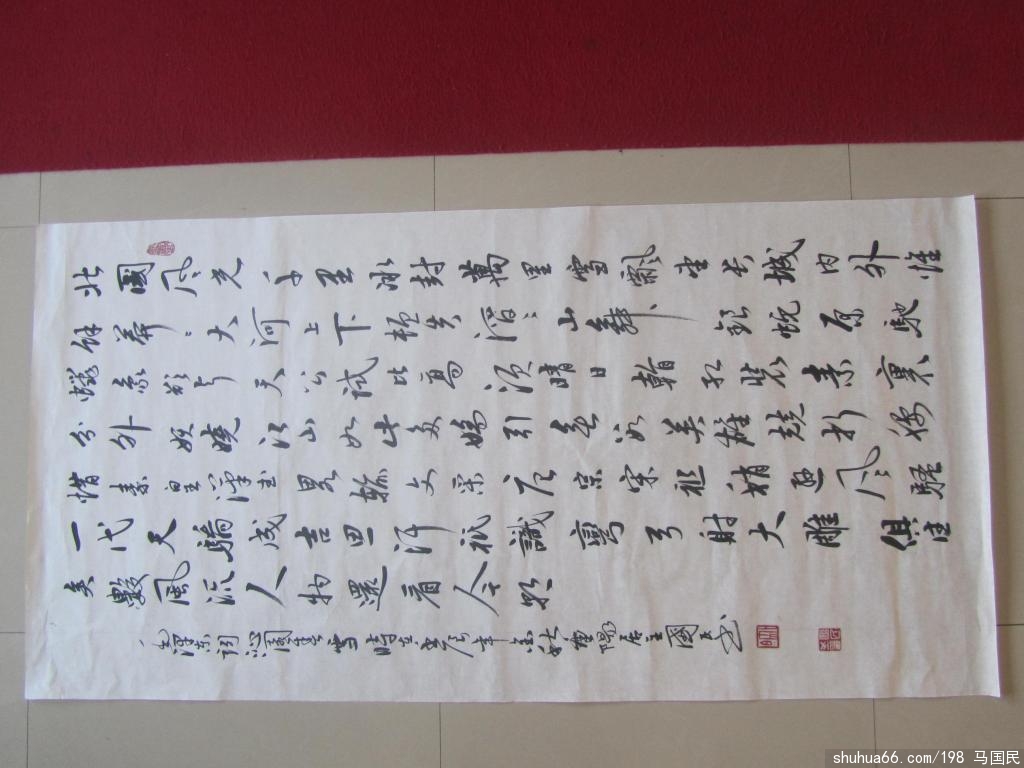 北國風光千里冰封萬里雪飄望长城内外惟
餘莽々大河上下頓失滔々山舞銀蛇原馳
蠟象欲與天公試比高須晴日看紅裝素裹
分外妖嬈江山如此多嬌引無數英雄競折腰
惜秦皇漢武畧輸文采唐宗宋祖稍遜風騷
一代天驕成吉思汗祇識彎弓射大雕俱往
矣數風流人物還看今朝
毛澤東詞沁園春雪時在辰年金秋陽居士國民書
shuhua66.com/198 马国民